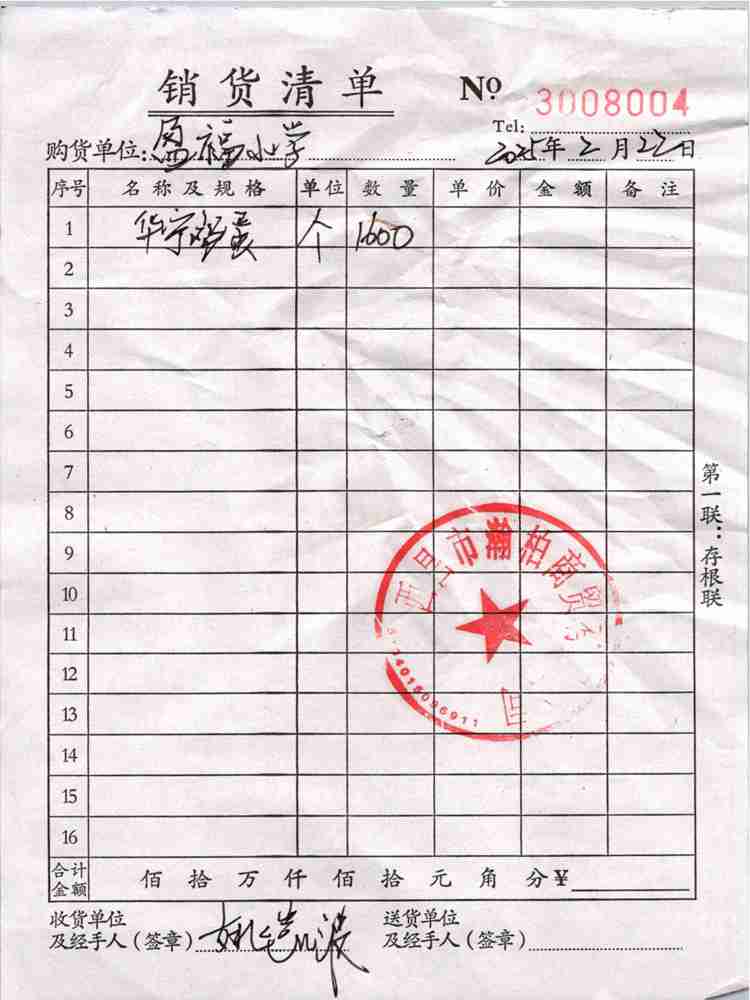 销货清单 Nº 3008004
Tel:
购货单位: 盈福小学 2025年2月22日
序号 名称及规格 单位 数量 单价 金额 备注
1 华宁鸡蛋 个 1600
2
3
4
5
6
7
8
9
10
11
12
13
14
15
16
合计金额 佰 拾 万 仟 佰 拾 元 角 分 ¥
收货单位 送货单位
及经手人(签章) 及经手人(签章)
第一联：存根联
市翰柏商贸
司
4018096911